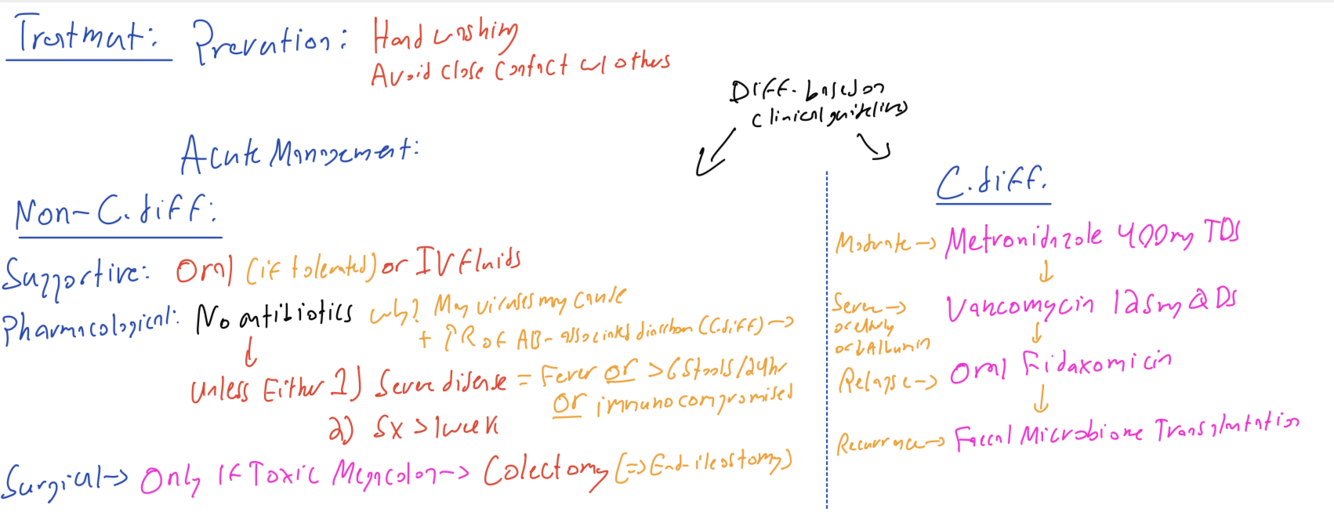 Treatment: Prevention: Hand washing
Avoid close contact w/ others
Diff. based on
clinical guidelines
Acute Management:
Non-C.diff:
Supportive: Oral (if tolerated) or IV fluids
Pharmacological: No antibiotics why? May viruses may cause
+ ↑R of AB-associated diarrhoea (C.diff) →
↓
unless Either 1) Severe disease = Fever or >6 stools/24hr
or immunocompromised
2) Sx > 1 week
Surgical → Only if Toxic Megacolon → Colectomy (=> End-ileostomy)
C.diff.
Moderate → Metronidazole 400mg TDS
↓
Severe → Vancomycin 125mg QDS
or
or ↓Albumin
↓
Relapse → Oral Fidaxomicin
↓
Recurrence → Faecal Microbiome Transplantation